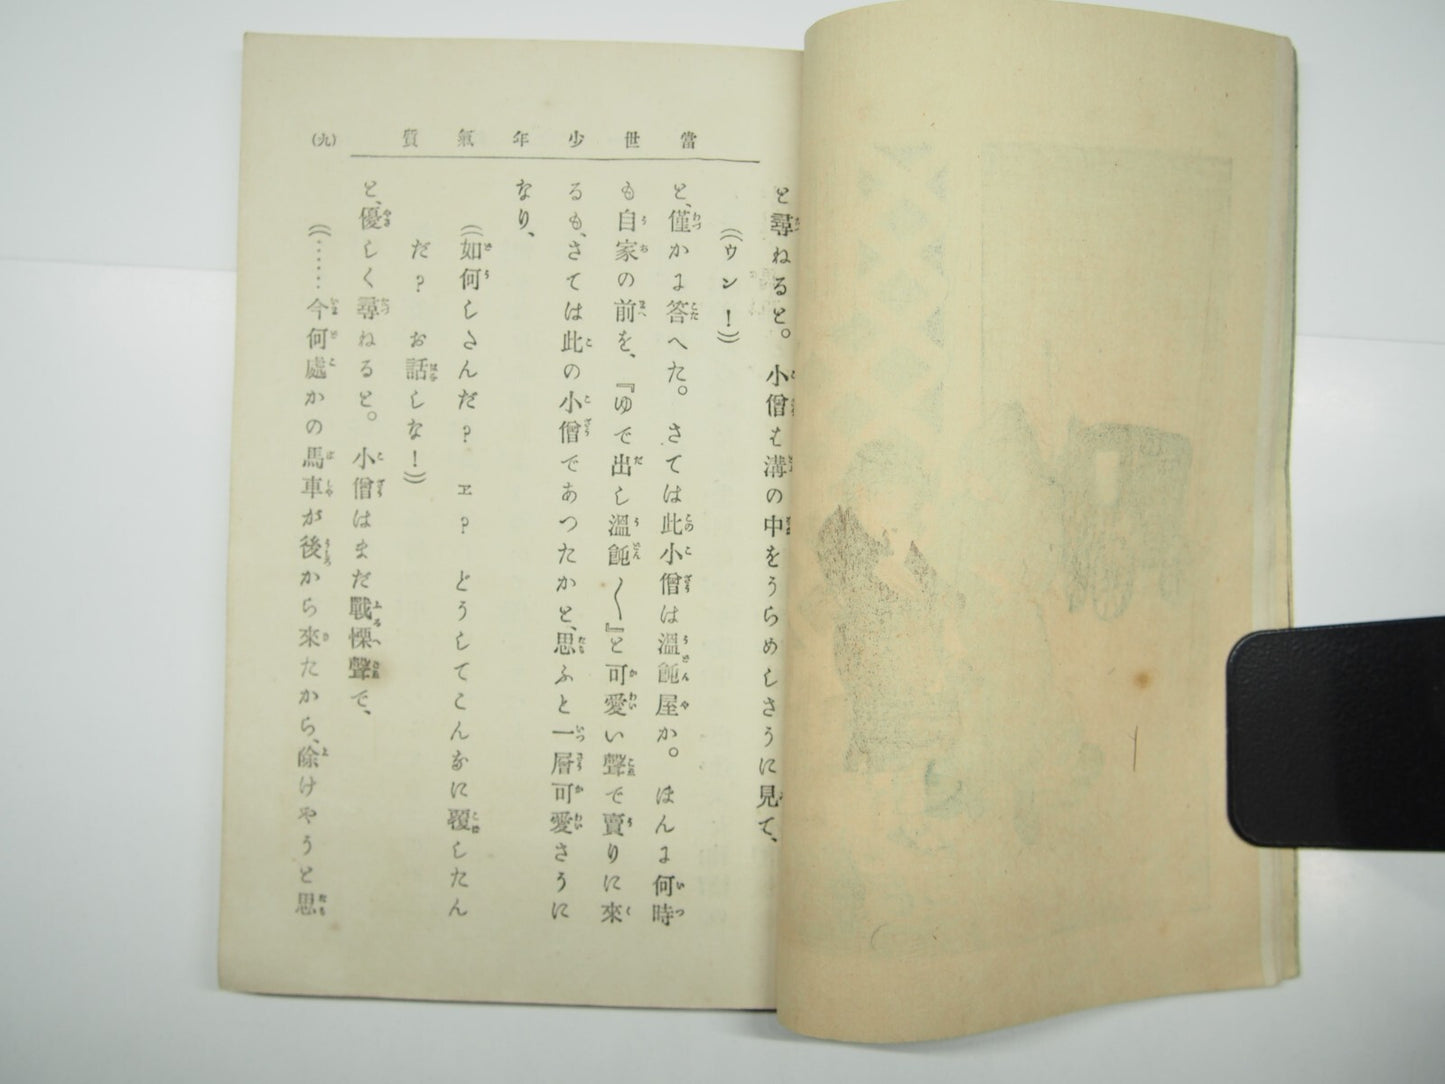 當世少年氣質
(九)
と尋ねると。小僧は溝の中をうらめしさうに見て、
((ウン！))
と、僅かに答へた。さては此小僧は溫飩屋か。ほんに何時
も自家の前を、『ゆで出し溫飩〱』と可愛い聲で賣りに來
るも、さては此の小僧であつたかと、思ふと一層可愛さうに
なり、
((如何しさんだ？ヱ？どうしてこんなに覆したん
だ？お話しな！))
と、優しく尋ねると。小僧はまだ戰慄聲で、
((……今何處かの馬車が後から來たから、除けやうと思